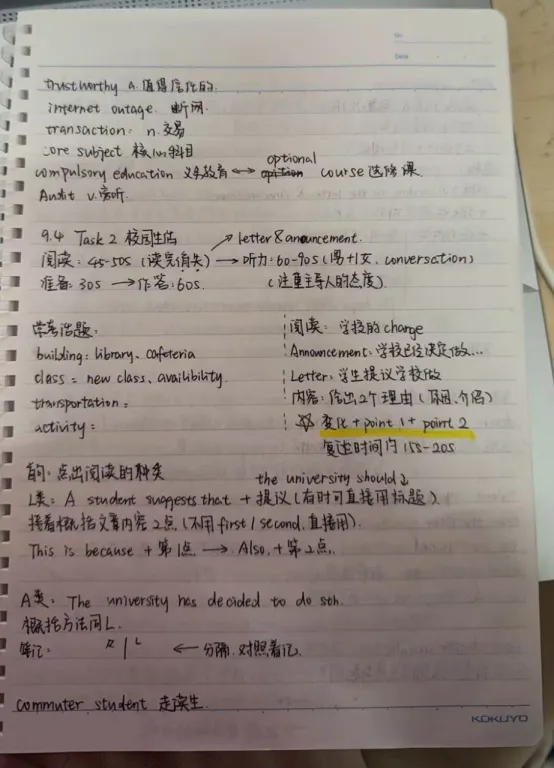 No.
Date
trustworthy a. 值得信任的.
internet outage. 断网.
transaction: n. 交易
core subject 核心科目
optional
compulsory education 义务教育 ↔ course 选修课.
Audit v. 旁听.
9.4 Task 2 校园生活 → letter & anouncement.
阅读: 45-50s (读完消失) → 听力: 60-90s (男+1女, conversation)
准备: 30s → 作答: 60s. (注重主导人的态度).
常考话题: 阅读: 学校的change
building: library. cafeteria Announcement: 学校已经决定做...
class: new class. availibility. Letter: 学生提议学校做
transportation: 内容: 给出2个理由 (原因、介绍)
activity: ☆ 变化 + point 1 + point 2
复述时间内 15s-20s
首句: 点出阅读的种类 the university should↓
L类: A student suggests that + 提议 (有时可直接用标题)
接着概括文章内容2点 (不用 first / second, 直接用).
This is because + 第1点 → Also, + 第2点.
A类: The university has decided to do sth.
概括方法同L.
笔记: R | L ← 分隔. 对照着记.
commuter student 走读生.
KOKUYO